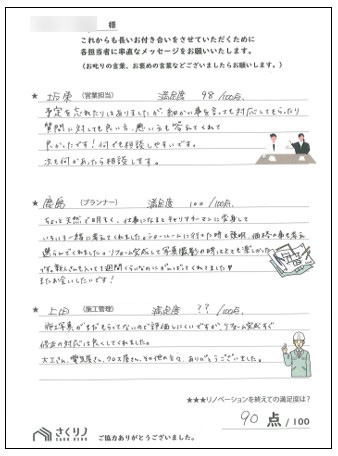 様
これからも長いお付き合いをさせていただくために
各担当者に率直なメッセージをお願いいたします。
(お叱りの言葉、お褒めの言葉などございましたらお願いします。)
★ 坂東 (営業担当) 満足度 98 /100点
予定を忘れたりはありましたが、細かい事を言っても対応してもらったり
質問に対しても良い方、悪い方も答えてくれて
良かったです!何でも相談しやすいです。
次も何かあったら相談します。
★ 鹿島 (プランナー) 満足度 100 /100点
ちょっと天然で明るく、仕事になるとキャリアウーマンに変身して
いろいろ一緒に考えてくれました。ショールームに行った時も説明、価格の事も考え
選らんでくれました。リフォーム完成して写真撮影の時はとても楽しかった
です。新人さんも入って1週間くらいなのにがんばってくれてました♥
またお会いしたいです!
★ 上田 (施工管理) 満足度 ?? /100点
施工写真がまだもらってないので評価しにくいですが、リフォーム完成すぐ
修正の対応は良くしてくれました。
大工さん、電気屋さん、クロス屋さん、その他の方々、ありがとうございました。
★★★リノベーションを終えての満足度は?
90 点 /100
さくリノ
SAKU RENO
ご協力ありがとうございました。